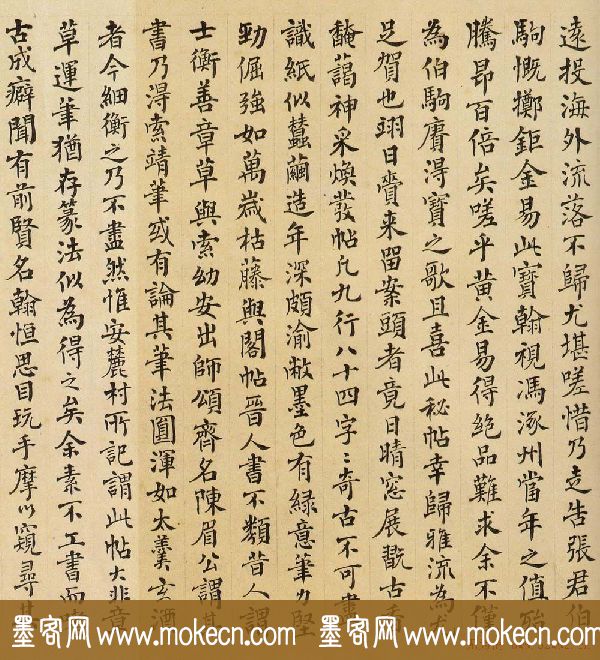 遠投海外流落不歸尤堪嗟惜乃走告張君伯
駒慨擲鉅金易此寶翰視馮涿州當年之值殆
騰昂百倍矣嗟乎黃金易得絕品難求余不僅
為伯駒賡得寶之歌且喜此秘帖幸歸雅流為
足賀也翊日賫來留案頭者竟日晴窓展翫古香
馣藹神采煥發帖凡九行八十四字〻奇古不可盡
識紙似蠶繭造年深頗渝敝墨色有綠意筆力堅
勁倔強如萬歲枯藤與閣帖晉人書不類昔人謂
士衡善章草與索幼安出師頌齊名陳眉公謂其
書乃得索靖筆或有論其筆法圓渾如太羹玄酒
者今細衡之乃不盡然惟安麓村所記謂此帖大非章
草運筆猶存篆法似為得之矣余素不工書而
古成癖聞有前賢名翰恒思目玩手摩以窺尋其
墨客网 www.mokecn.com 墨客网 www.mokecn.com